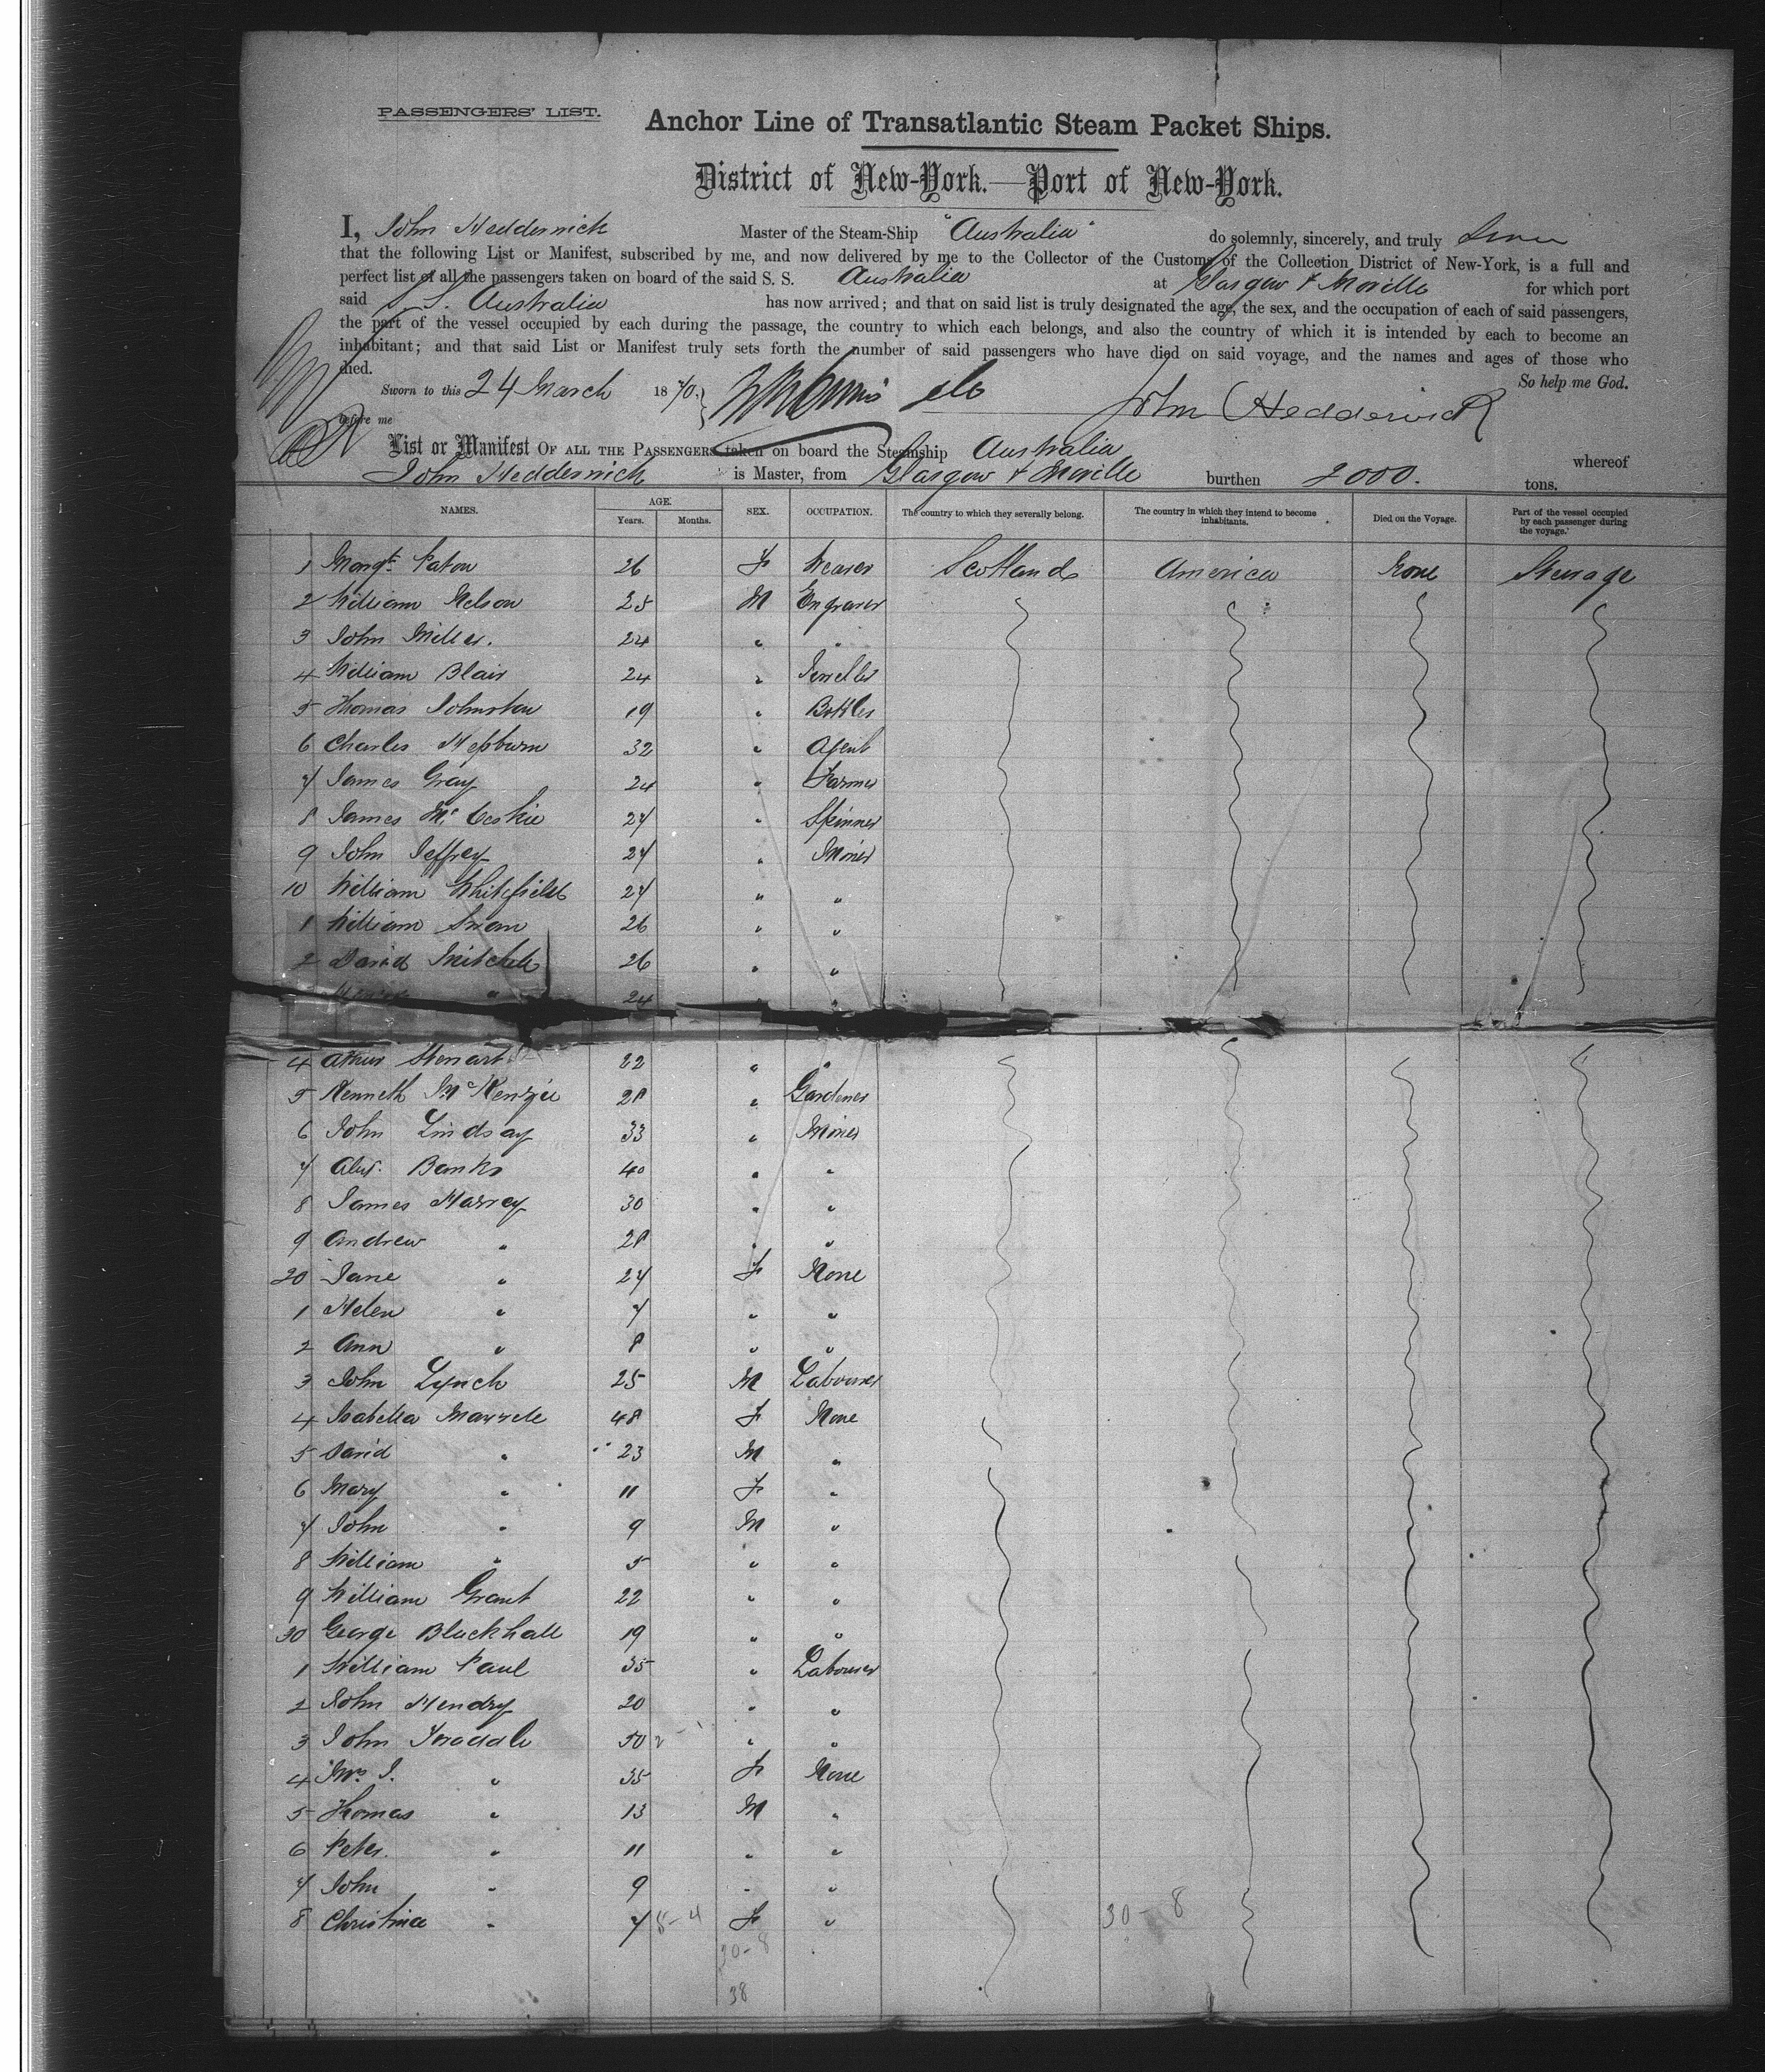 PASSENGERS' LIST.
Anchor Line of Transatlantic Steam Packet Ships.
District of New-York.—Port of New-York.
I, John Hedderwick Master of the Steam-Ship "Australia" do solemnly, sincerely, and truly
that the following List or Manifest, subscribed by me, and now delivered by me to the Collector of the Customs of the Collection District of New-York, is a full and
perfect list of all the passengers taken on board of the said S. S. Australia at Glasgow & Moville for which port
said S.S. Australia has now arrived; and that on said list is truly designated the age, the sex, and the occupation of each of said passengers,
the part of the vessel occupied by each during the passage, the country to which each belongs, and also the country of which it is intended by each to become an
inhabitant; and that said List or Manifest truly sets forth the number of said passengers who have died on said voyage, and the names and ages of those who
died. So help me God.
Sworn to this 24 March 1870. John Hedderwick
before me
List or Manifest OF ALL THE PASSENGERS taken on board the Steamship Australia whereof
John Hedderwick is Master, from Glasgow & Moville burthen 2000. tons.
NAMES. AGE. Years. Months. SEX. OCCUPATION. The country to which they severally belong. The country in which they intend to become inhabitants. Died on the Voyage. Part of the vessel occupied by each passenger during the voyage.
1 Margt. Paton 26 F Weaver Scotland America None Steerage
2 William Nelson 25 M Engraver
3 John Miller. 24 " "
4 William Blair 24 "
5 Thomas Johnston 19 " Bottler
6 Charles Hepburn 32 " Agent
7 James Gray 24 " Farmer
8 James 27 " Skinner
9 John Jeffrey 27 " Miner
10 William Whitefield 27 " "
1 William Swan 26 " "
2 David Mitchell 26 " "
" 24 "
4 Stewart 22 " "
5 Kenneth McKenzie 28 " Gardener
6 John Lindsay 33 " Miner
7 Alexr. Banks 40 " "
8 James Harvey 30 " "
9 Andrew " 28 " "
20 Jane " 27 F None
1 Helen " 7 " "
2 Ann " 8 " "
3 John Lynch 25 M Labourer
4 Isabella 48 F None
5 David " 23 M "
6 Mary " 11 F "
7 John " 9 M "
8 William " 5 " "
9 William Grant 22 " "
30 George Blackhall 19 " "
1 William Paul 35 " Labourer
2 John Hendry 20 " "
3 John 50 " "
4 Mrs. J. " 35 F None
5 Thomas " 13 M "
6 Peter. " 11 " "
7 John " 9 " "
8 Christina " 7 8-4 F " 30-8
30-8
38